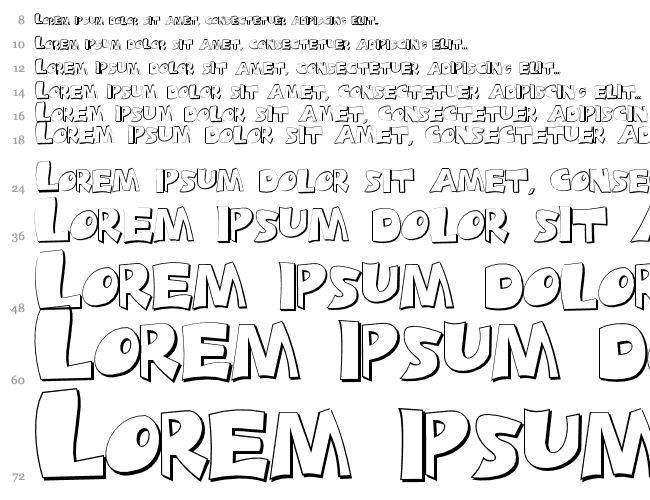 8 Lorem ipsum dolor sit amet, consectetuer adipiscing elit...
10 Lorem ipsum dolor sit amet, consectetuer adipiscing elit...
12 Lorem ipsum dolor sit amet, consectetuer adipiscing elit...
14 Lorem ipsum dolor sit amet, consectetuer adipiscing elit...
16 Lorem ipsum dolor sit amet, consectetuer adipiscin
18 Lorem ipsum dolor sit amet, consectetuer ad
24 Lorem ipsum dolor sit amet, conse
36 Lorem ipsum dolor sit a
48 Lorem ipsum dolor
60 Lorem ipsum d
72 Lorem ipsum